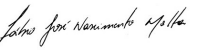 Fábio José Nascimento Motta